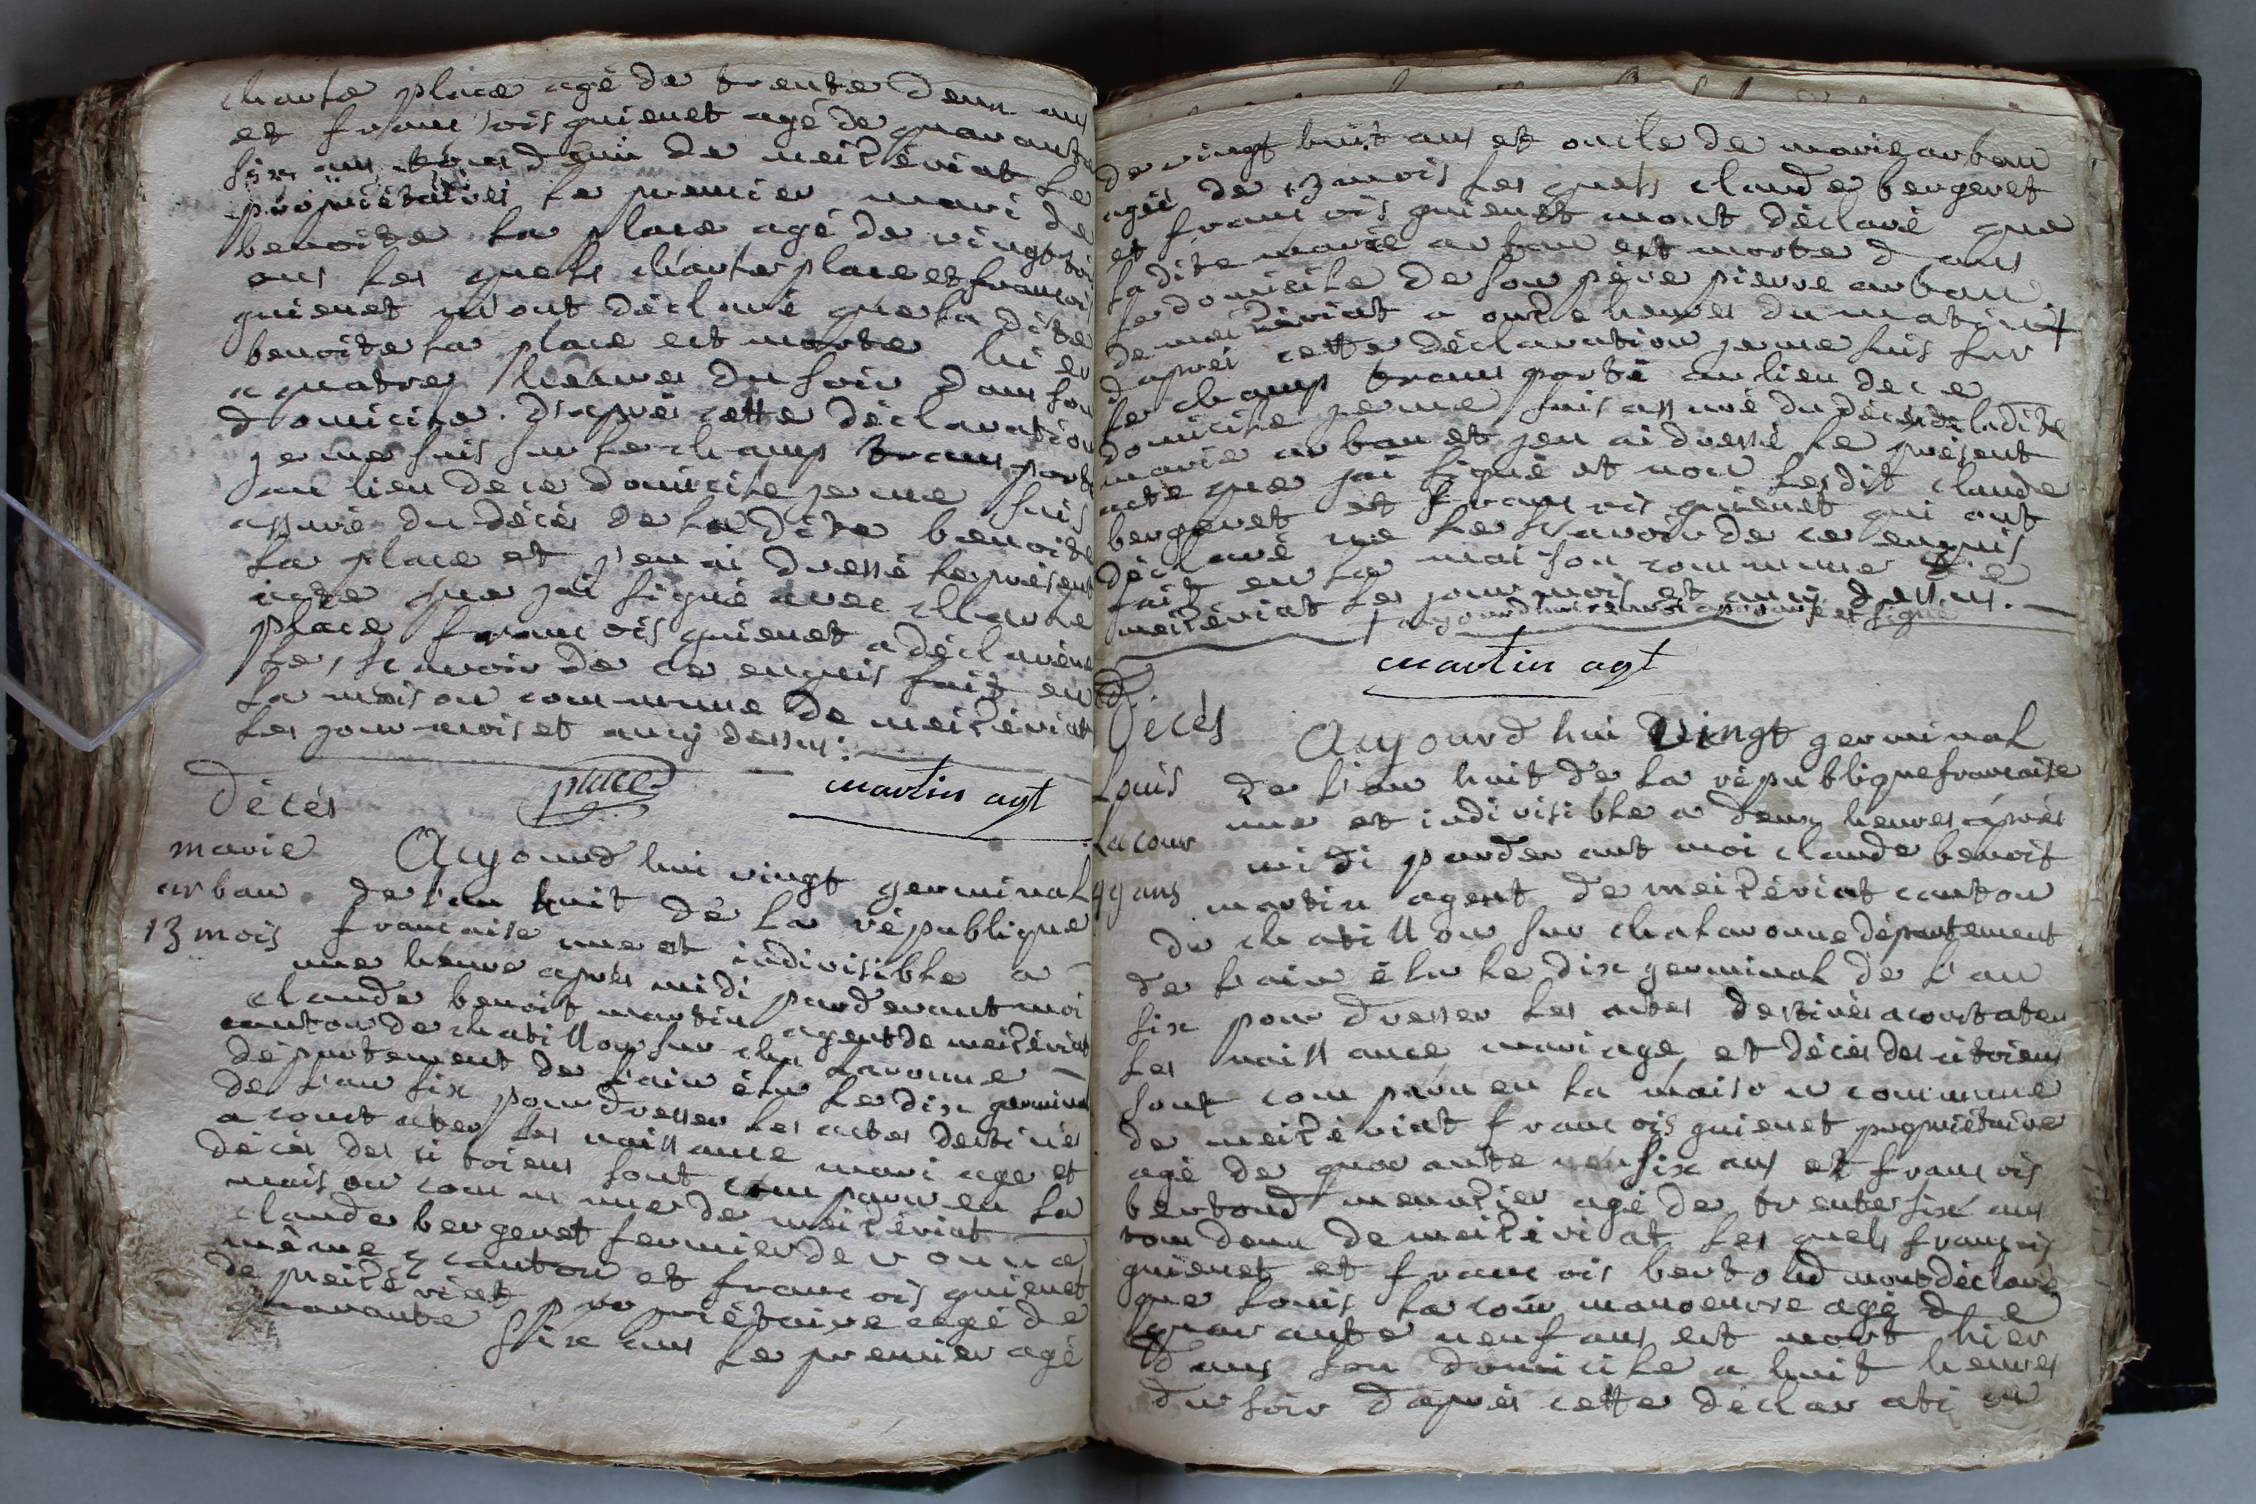 charle place agé de trente deux ans
et francois guienet agé de quarante
six ans tous deux de neizériat le
propriétaires le premier mari de
benoite la place agé de vingt
ans les quels charle place et francois
guienet m'ont déclaré que la dite
benoite la place est morte hier
a quatre heures du soir dans son
domicile. d'après cette déclaration
je me suis sur le champ transporté
au lieu de ce domicile je me suis
assuré du décès de la dite benoite
la place et j'en ai dressé le présent
acte que jai signé avec charle
place francois guienet a déclaré ne
le scavoir de ce enquis fait en
la maison commune de neizériat
les jour mois et an cy dessus.
place martin agt
Décès
marie
arban
13 mois
Aujourd hui vingt germinal
de l'an huit de la république
francaise une et indivisible a
une heure après midi pardevant moi
claude benoit martin agent de neizériat
canton de chatillon sur chalaronne
département de l'ain élu le dix germinal
de l'an six pour dresser les actes destinés
a constater les naissance mariage et
décès des sitoiens sont comparu en la
maison commune de neizériat
claude bergeret fermier de vonna
même canton et francois guienet
de neizériat propriétaire agé de
quarante six ans le premier agé
de vingt huit ans et oncle de marie arban
agée de 13 mois les quels claude bergeret
et francois guienet mont déclaré que
la dite marie arban est morte d ans
le domicile de son père pierre arban
de neizériat a onze heures du matin +
d'après cette déclaration je me suis sur
le champ transporté au lieu de ce
domicile je me suis assuré du décès de ladite
marie arban et jen ai dressé le présent
acte que jai signé et non lesdit claude
bergeret et francois guienet qui ont
déclaré ne le scavoir de ce enquis
fait en la maison commune de
neizériat les jour mois et an cy dessus.
+ aujourd'hui renvoi approuvé et signé
martin agt
Décès
Louis
Lacour
49 ans
Aujourd hui vingt germinal
de l'an huit de la république francaise
une et indivisible a deux heures après
midi pardevant moi claude benoit
martin agent de neizériat canton
de chatillon sur chalaronne département
de l'ain élu le dix germinal de l'an
six pour dresser les actes destinés a constater
les naissance mariage et décès des citoiens
sont comparu en la maison commune
de neizériat francois guienet propriétaire
agé de quarante six ans et francois
bertoud meunier agé de trente six ans
tou deux de neizériat les quels francois
guienet et francois bertoud mont déclaré
que Louis la cour manoeuvre agé de
quarante neuf ans est mort hier
dans son domicile a huit heures
du soir d'après cette déclaration